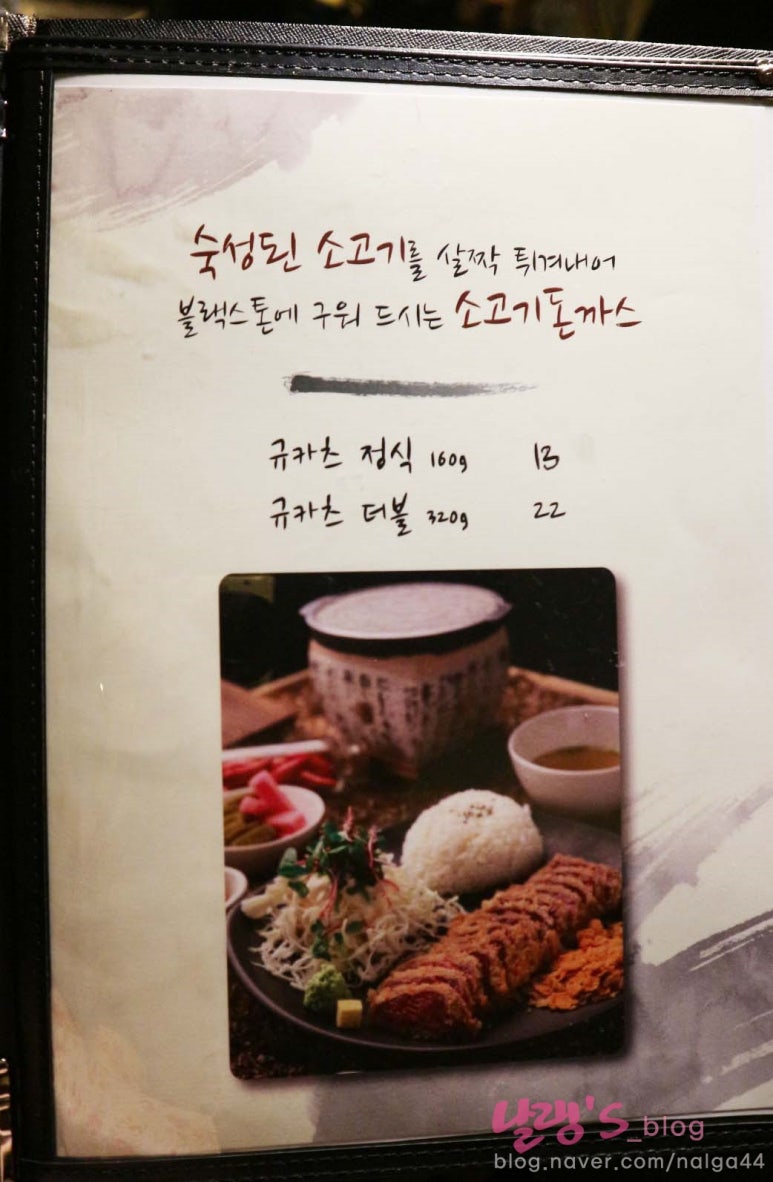 숙성된 소고기를 살짝 튀겨내어
블랙스톤에 구워 드시는 소고기돈까스
규카츠 정식 160g 13
규카츠 더블 320g 22
날랭'S_blog
blog.naver.com/nalga44